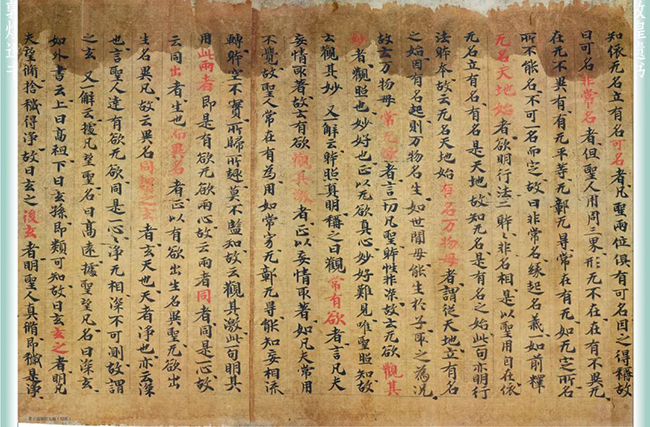 知依无名立有名可名者凡聖兩位俱有可名因之得稱故
曰可名非常名者但聖人用周三界形无不在在有不異无
在无不異有有无平等无彰无尋常在有无如无定所名
所不能名不可一名而定故曰非常名緣起名義如前釋
无名天地始者欲明行法二體非名相是以聖用自在依
无名立有名有名是天地故知无名是有名之始此句亦明行
法體本故云无名天地始有名万物母者謂從天地立有名
之始因有名起則万物名生如世間母能生於子耶之為況
故云万物母常无欲者言一切凡聖體性非染故云无欲觀其
妙者觀照也妙好也正以无欲真心妙好難見唯聖照知故
云觀其妙又一解云體照真明稱之曰觀常有欲者言凡夫
妄情取著故云有欲觀其徼者正以妄情取著如凡夫常用
不覺故聖人常在有為用如常方无彰无尋能知妄相流
轉體空不實所歸所趣莫不盡知故云觀其徼此句明其
用此兩者即是有欲无欲兩心故云兩者同者同是一心故
云同出者生也而異名者正以有欲出生名異聖无欲出
生名異凡故云異名同謂之玄者玄天也天者淨也亦云深
也言聖人達有欲无欲同是一心々淨无相深不可測故謂
之玄又一解云據凡望聖名曰高遠據聖望凡名曰深玄
如外書云上曰高祖下曰玄孫即類可知故曰玄玄之者明凡
夫望脩捨穢得淨故曰玄之復玄者明聖人真脩即穢是淨